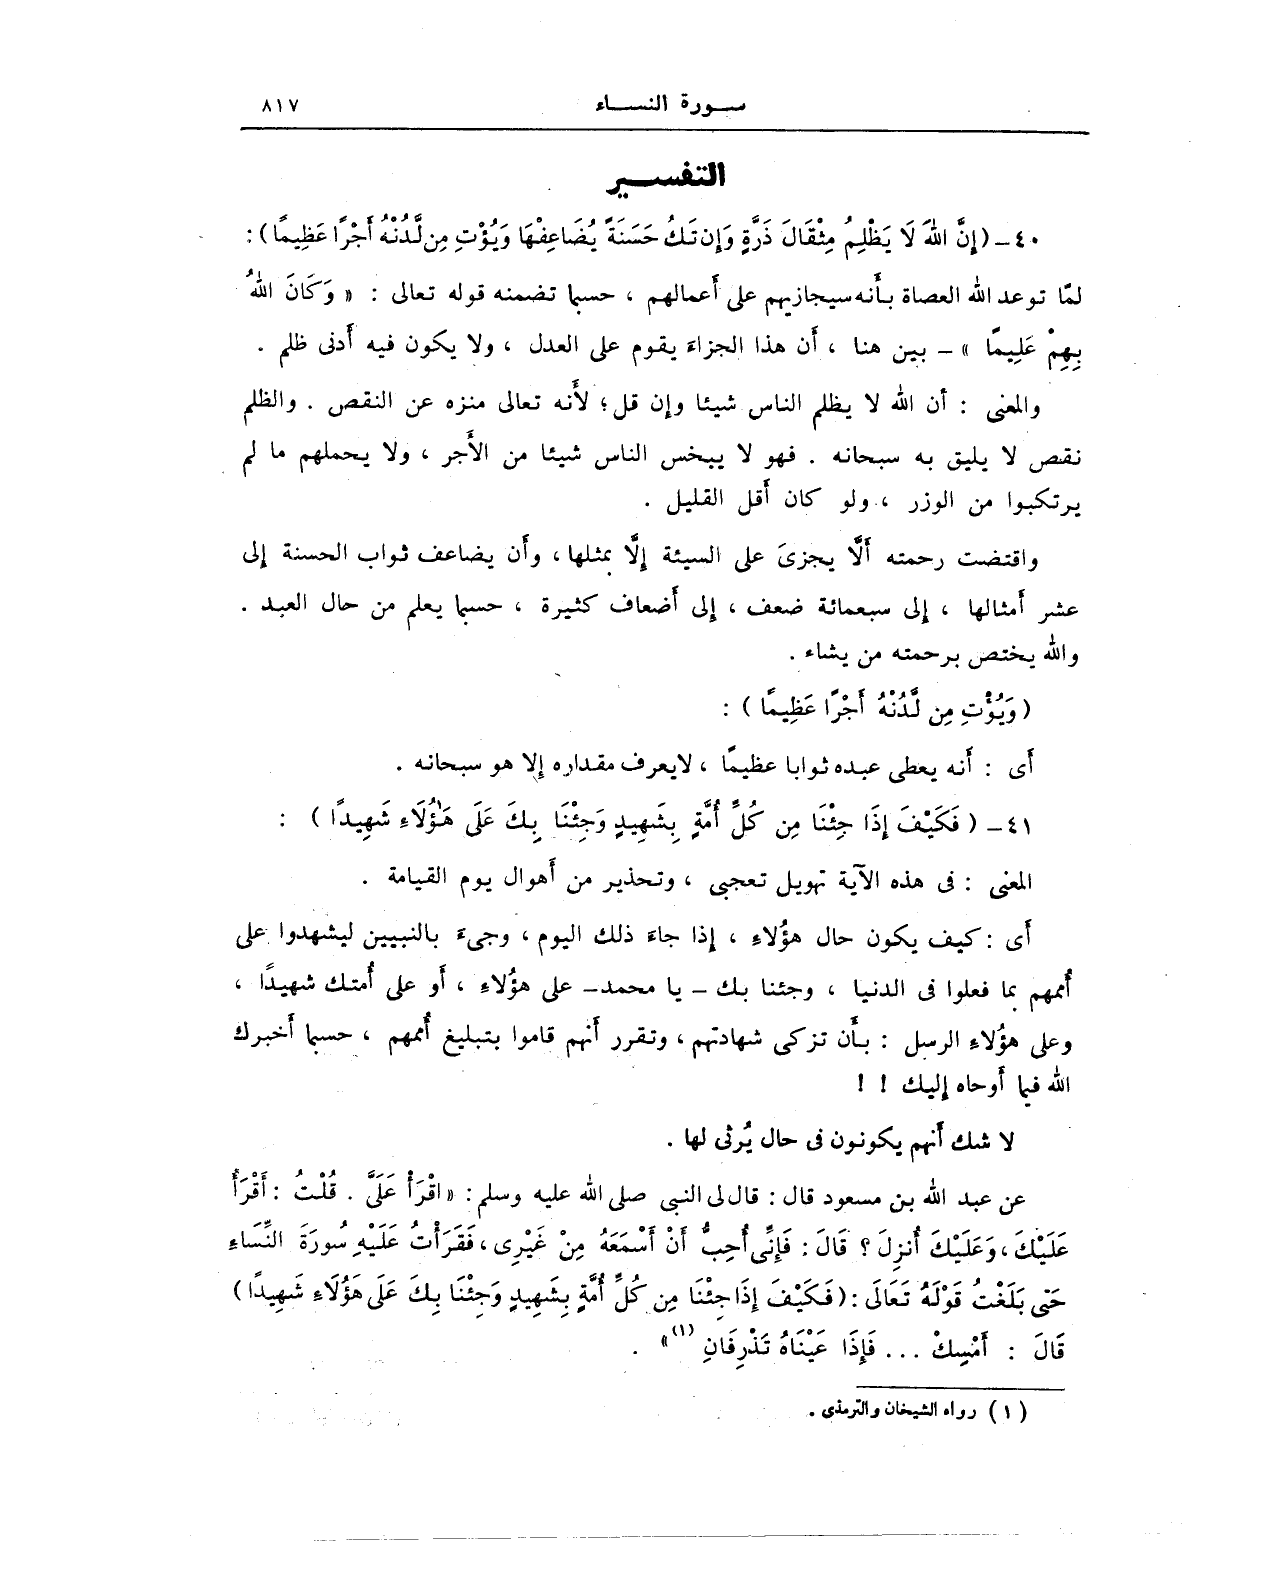 سورة النساء ٨١٧
التفسير
٤٠ – (إِنَّ اللهَ لَا يَظْلِمُ مِثْقَالَ ذَرَّةٍ وَإِن تَكُ حَسَنَةً يُضَاعِفْهَا وَيُؤْتِ مِن لَّدُنْهُ أَجْرًا عَظِيمًا) :
لمّا توعد الله العصاة بأَنه سيجازيهم على أَعمالهم ، حسبما تضمنه قوله تعالى : « وَكَانَ اللهُ
بِهِمْ عَلِيمًا » – بين هنا ، أَن هذا الجزاءَ يقوم على العدل ، ولا يكون فيه أَدنى ظلم .
والمعنى : أن الله لا يظلم الناس شيئا وإن قل ؛ لأَنه تعالى منزه عن النقص . والظلم
نقص لا يليق به سبحانه . فهو لا يبخس الناس شيئا من الأَجر ، ولا يحملهم ما لم
يرتكبوا من الوزر ، ولو كان أَقل القليل .
واقتضت رحمته أَلَّا يجزىَ على السيئة إِلَّا بمثلها ، وأَن يضاعف ثواب الحسنة إِلى
عشر أَمثالها ، إِلى سبعمائة ضعف ، إِلى أَضعاف كثيرة ، حسبما يعلم من حال العبد .
والله يختص برحمته من يشاء .
(وَيُؤْتِ مِن لَّدُنْهُ أَجْرًا عَظِيمًا ) :
أَى : أَنه يعطى عبده ثوابا عظيمًا ، لا يعرف مقداره إِلا هو سبحانه .
٤١ – ( فَكَيْفَ إِذَا جِئْنَا مِن كُلِّ أُمَّةٍ بِشَهِيدٍ وَجِئْنَا بِكَ عَلَى هَٰؤُلَاءِ شَهِيدًا ) :
المعنى : فى هذه الآية تهويل تعجبى ، وتحذير من أَهوال يوم القيامة .
أَى : كيف يكون حال هؤُلاءِ ، إِذا جاءَ ذلك اليوم ، وجىءَ بالنبيين ليشهدوا على
أُممهم بما فعلوا فى الدنيا ، وجئنا بك – يا محمد – على هؤُلاءِ ، أَو على أُمتك شهيدًا ،
وعلى هؤُلاءِ الرسل : بأَن تزكى شهادتهم ، وتقرر أَنهم قاموا بتبليغ أُممهم ، حسبما أَخبرك
الله فيما أَوحاه إِليك ! !
لا شك أَنهم يكونون فى حال يُرثى لها .
عن عبد الله بن مسعود قال : قال لى النبى صلى الله عليه وسلم : « اقْرَأْ عَلَىَّ . قُلْتُ : أَقْرَأُ
عَلَيْكَ ، وَعَلَيْكَ أُنزِلَ ؟ قَالَ : فَإِنِّى أُحِبُّ أَنْ أَسْمَعَهُ مِنْ غَيْرِى ، فَقَرَأْتُ عَلَيْهِ سُورَةَ النِّسَاءِ
حَتى بَلَغْتُ قَوْلَهُ تَعَالَى : (فَكَيْفَ إِذَا جِئْنَا مِن كُلِّ أُمَّةٍ بِشَهِيدٍ وَجِئْنَا بِكَ عَلَى هَؤُلَاءِ شَهِيدًا )
قَالَ : أَمْسِكْ ... فَإِذَا عَيْنَاهُ تَذْرِفَانِ (١) » .
( ١ ) رواه الشيخان والترمذى .